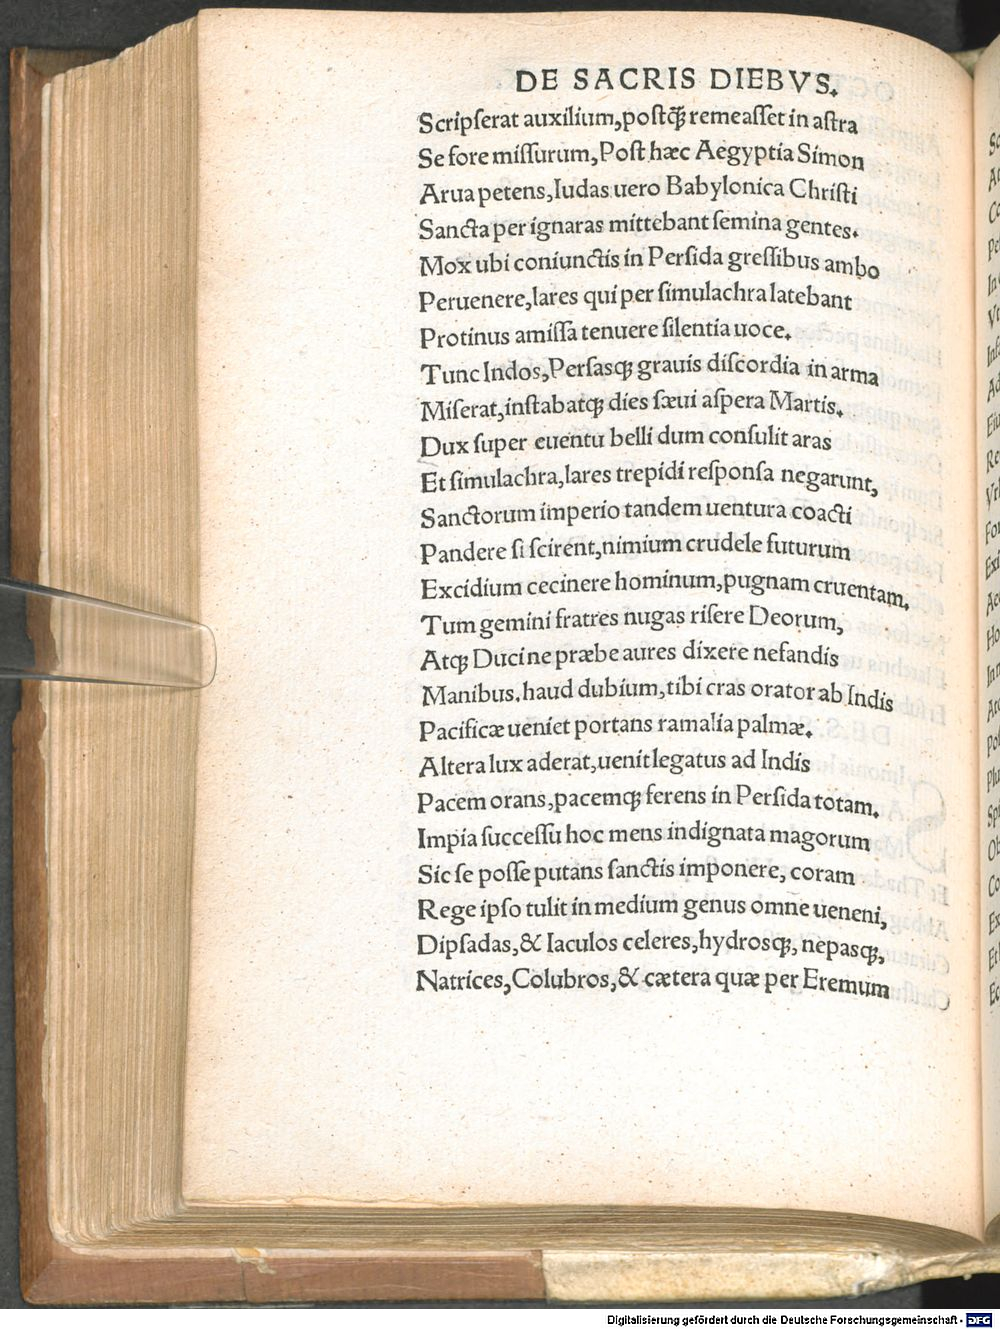 DE SACRIS DIEBVS.
Scripſerat auxilium, poſtꝗ̃ remeaſſet in aſtra
Se fore miſſurum, Poſt hæc Aegyptia Simon
Arua petens, Iudas uero Babylonica Chriſti
Sancta per ignaras mittebant ſemina gentes.
Mox ubi coniunctis in Perſida greſſibus ambo
Peruenere, lares qui per ſimulachra latebant
Protinus amiſſa tenuere ſilentia uoce.
Tunc Indos, Perſasꝗ grauis diſcordia in arma
Miſerat, inſtabatꝗ dies ſæui aſpera Martis.
Dux ſuper euentu belli dum conſulit aras
Et ſimulachra, lares trepidi reſponſa negarunt,
Sanctorum imperio tandem uentura coacti
Pandere ſi ſcirent, nimium crudele futurum
Excidium cecinere hominum, pugnam cruentam.
Tum gemini fratres nugas riſere Deorum,
Atꝗ Duci ne præbe aures dixere nefandis
Manibus. haud dubium, tibi cras orator ab Indis
Pacificæ ueniet portans ramalia palmæ.
Altera lux aderat, uenit legatus ad Indis
Pacem orans, pacemꝗ ferens in Perſida totam.
Impia ſucceſſu hoc mens indignata magorum
Sic ſe poſſe putans ſanctis imponere, coram
Rege ipſo tulit in medium genus omne ueneni,
Dipſadas, & Iaculos celeres, hydrosꝗ, nepasꝗ,
Natrices, Colubros, & cætera quæ per Eremum
Digitalisierung gefördert durch die Deutsche Forschungsgemeinschaft - DFG